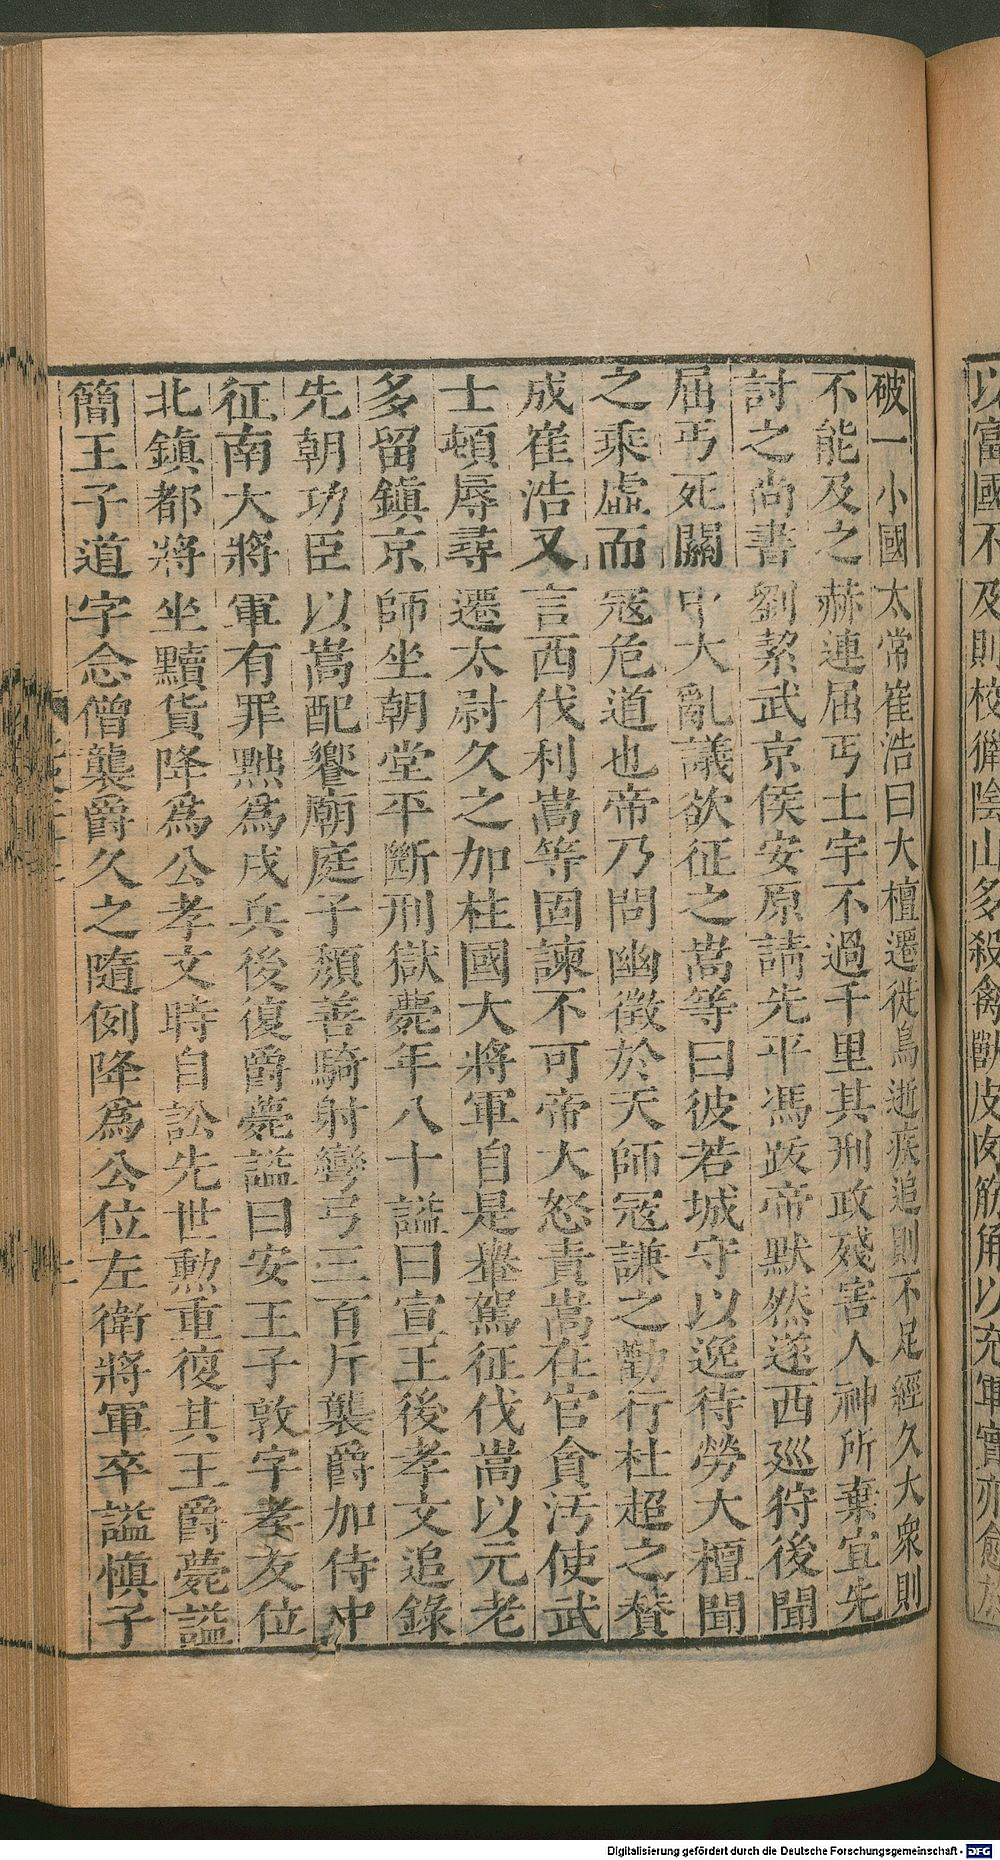 以富國不及則校獵陰山多殺禽獸皮肉筋角以充軍實亦愈於
破一小國太常崔浩曰大檀遷徙鳥逝疾追則不足經久大衆則
不能及之赫連屈丐土宇不過千里其刑政殘害人神所棄宜先
討之尚書劉絜武京侯安原請先平馮跋帝默然遂西巡狩後聞
屈丐死關中大亂議欲征之嵩等曰彼若城守以逸待勞大檀聞
之乘虛而寇危道也帝乃問幽徵於天師寇謙之勸行杜超之賛
成崔浩又言西伐利嵩等固諫不可帝大怒責嵩在官貪汚使武
士頓辱尋遷太尉久之加柱國大將軍自是輿駕征伐嵩以元老
多留鎮京師坐朝堂平斷刑獄薨年八十謚曰宣王後孝文追錄
先朝功臣以嵩配饗廟庭子頹善騎射彎弓三百斤襲爵加侍中
征南大將軍有罪黜爲戍兵後復爵薨謚曰安王子敦字孝友位
北鎮都將坐黷貨降爲公孝文時自訟先世勳重復其王爵薨謚
簡王子道字念僧襲爵久之隨例降爲公位左衛將軍卒謚慎子
Digitalisierung gefördert durch die Deutsche Forschungsgemeinschaft - DFG